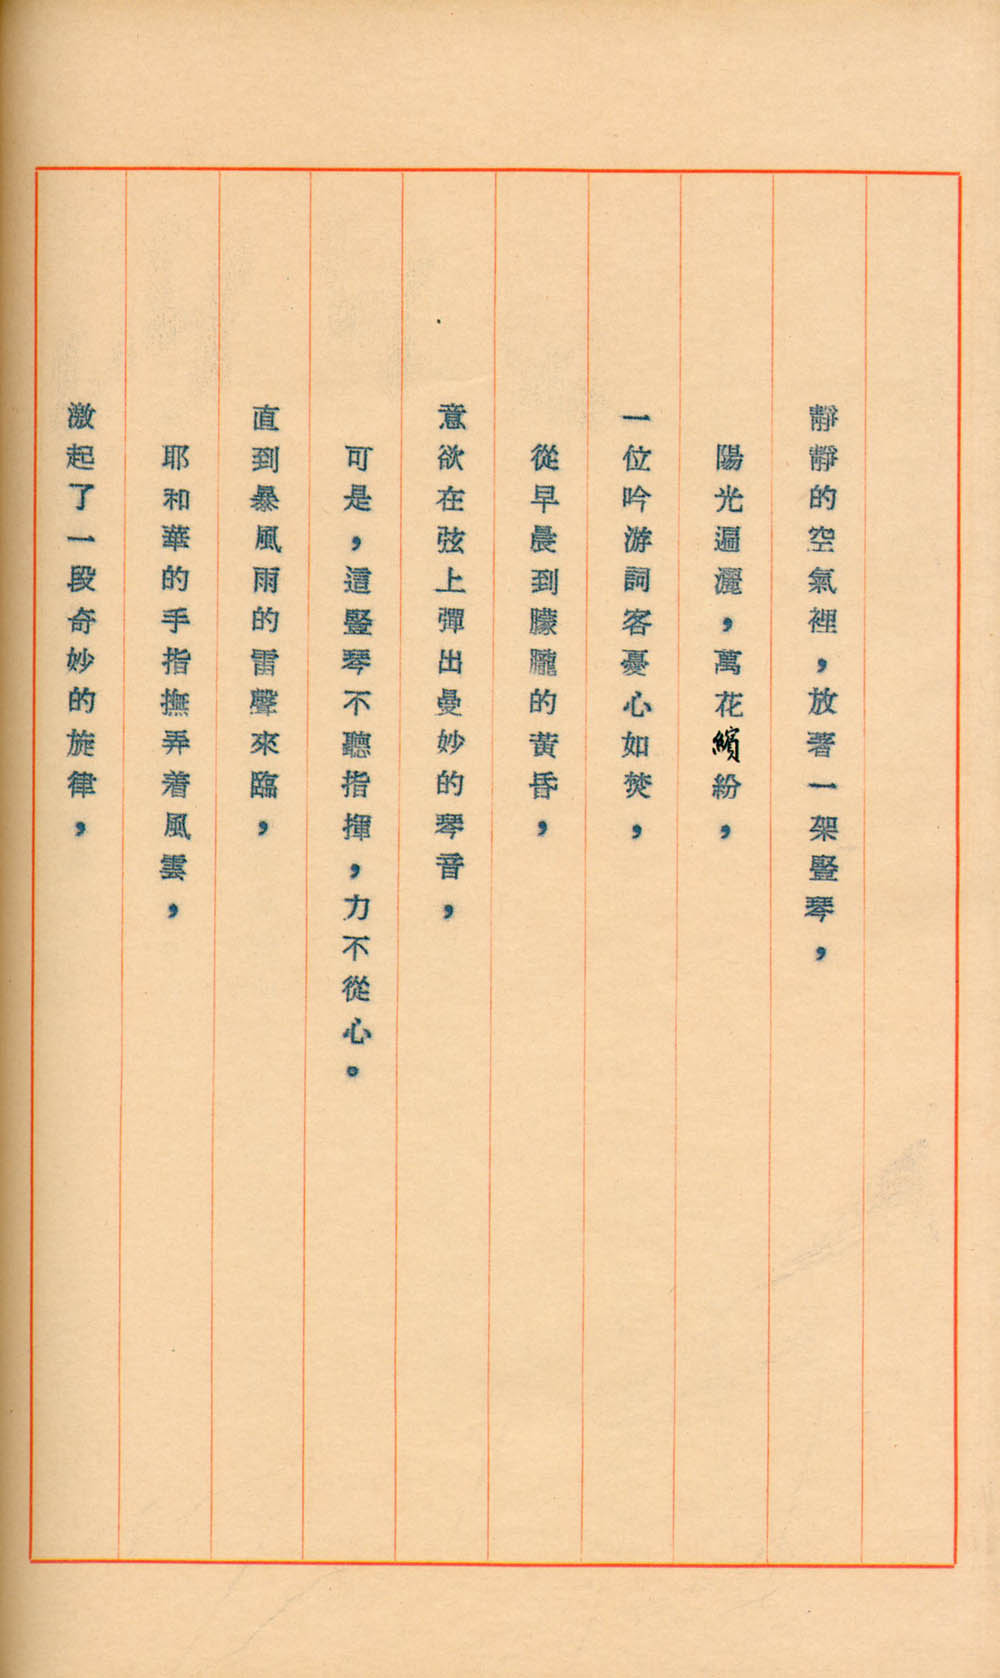 靜靜的空氣裡，放著一架豎琴，
陽光遍灑，萬花繽紛，
一位吟游詞客憂心如焚，
從早晨到朦朧的黃昏，
意欲在弦上彈出曼妙的琴音，
可是，這豎琴不聽指揮，力不從心。
直到暴風雨的雷聲來臨，
耶和華的手指撫弄着風雲，
激起了一段奇妙的旋律，